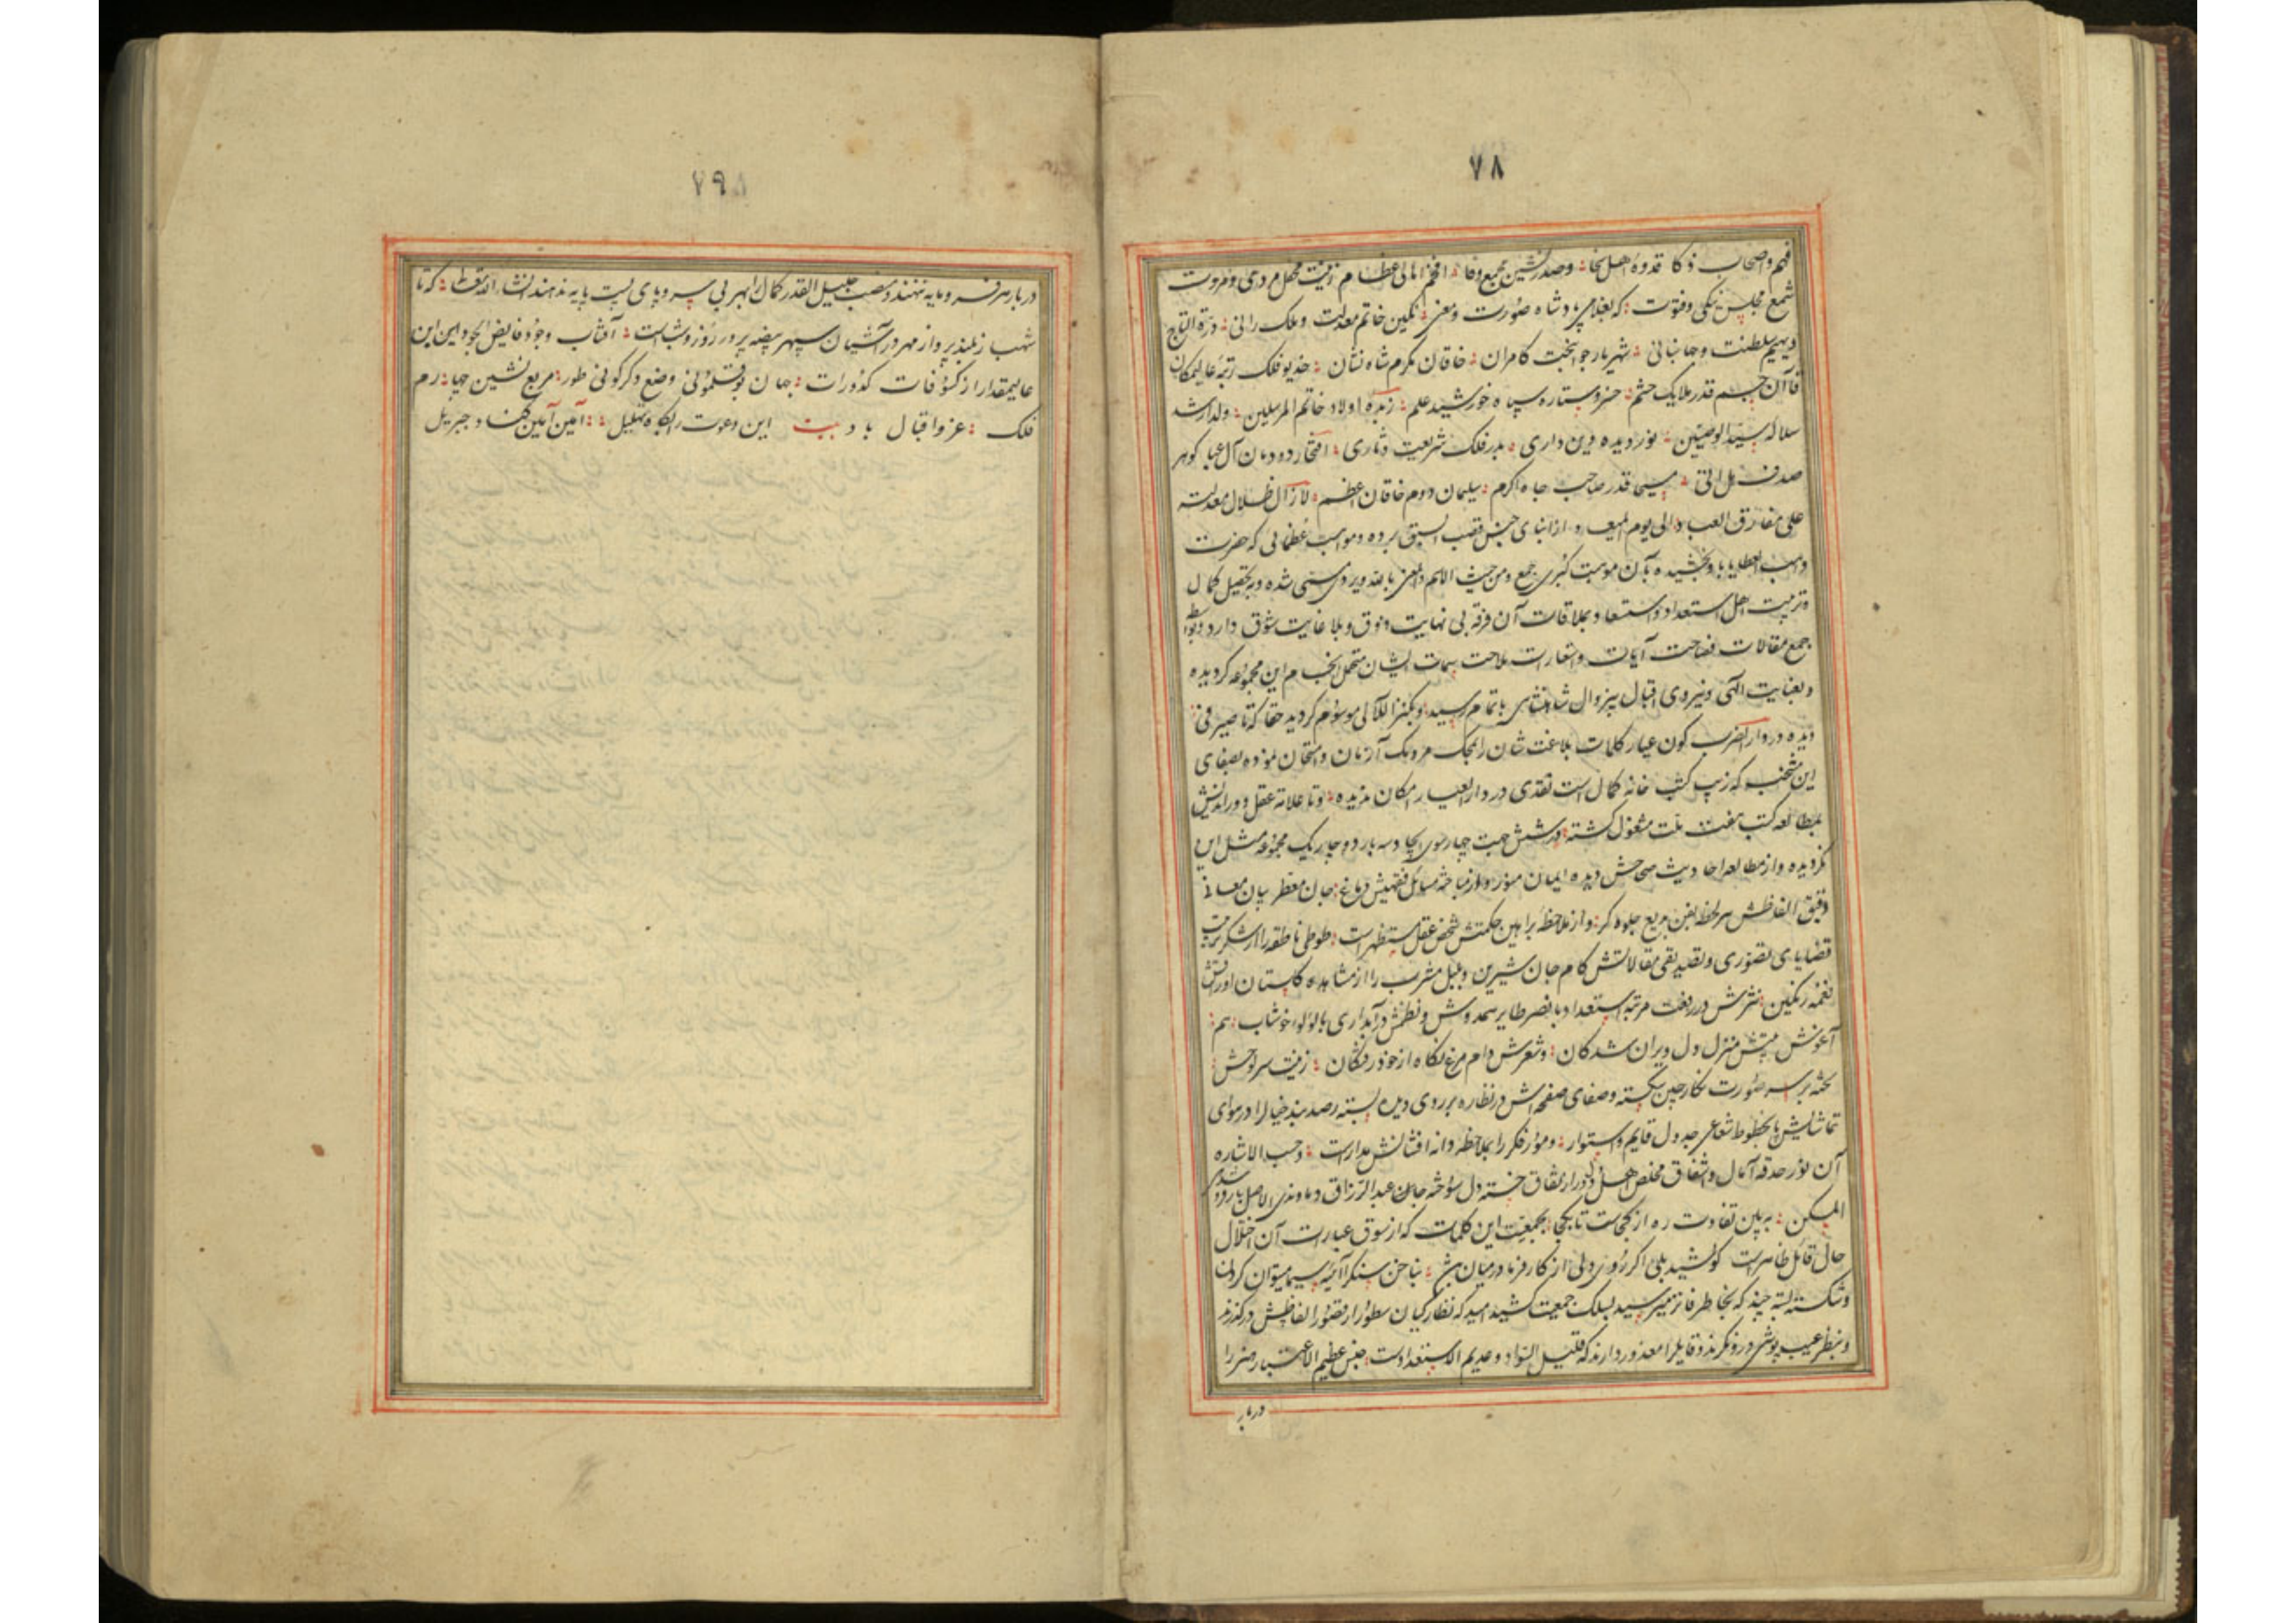 ٧٨
فهم و اصحاب ذکا قدوه اهل سخا و صدرنشین مجمع وفا افخم اهالی عظام زینت محفل مردی و مروت
شمع مجلس نیکی و فتوت که بغلامی پادشاه صورت و معنی نگین خاتم معدلت و ملک رانی درة التاج
دیهیم سلطنت و جهانبانی شهریار جوانبخت کامران خاقان مکرم شاه نشان خدیو فلک رتبه عالیمکان
قاآن جم قدر ملایک حشم خسرو ستاره سپاه خورشید علم زبده اولاد خاتم المرسلین ولد ارشد
سلاله سید الوصیین نور دیده دین داری بدر فلک شریعت افتخار دودمان آل عبا کوهر
صدف هل اتی مسیحا قدر صاحب جاه اکرم سلیمان دوم خاقان اعظم لازال ظلال معدلته
علی مفارق العباد الی یوم المیعاد از ابنای جنس قصب السبق برده و مواهب عظمائی که حضرت
واهب العطایا باو بخشیده بآن موهبت کبری جمع و من حیث الاسم و المعنی شده و به تحصیل کمال
و تربیت اهل استعداد و استسعاد بملاقات آن فرقه بی نهایت ذوق و بلا غایت شوق دارد
جمع مقالات فصاحت آیات و استعارات ملاحت سمات ایشان این مجموعه کردیده
و بعنایت الهی و نیروی اقبال بیزوال شاهنشاهی باتمام رسید و بکنز اللآلی موسوم کردید حقا که تا صیرفی
دیده در دار الضرب کون عیار کلمات بلاغت شان را بمحک مردمک آزمان و امتحان نموده بصفای
این منتخب که زیب کتب خانه کمال است نقدی در دار العیار امکان ندیده و تا علامه عقل دوراندیش
بمطالعه کتب هفت ملت مشغول کشته در شش جهت چهارسوی ایجاد سه بار دوچار یک مجموعه مثل این
نکردیده و از مطالعه احادیث صحاحش دیده ایمان منور و از مباحثه مسائل فقهیش دماغ جان معطر بیان معانی
دقیق الفاظش هر لحظه بفن بدیع جلوه کر و از ملاحظه براهین حکمتش شخص عقل مستظهر است طوطی ناطقه را از شکر
قضایای تصوری و تصدیقی مقالاتش کام جان شیرین و بلبل مشرب را از مشاهده کلستان اوراقش
نغمه رنکین نثرش در رفعت مرتبه استعداد با نصر طایر همدوش و نظمش در آبداری با لؤلؤ خوشاب هم
آغوش بیتش منزل دل ویران شدکان و شعرش دام مرغ نکاه از خود رفتکان زینت سرلوحش
تخته بر سر صورت نکار چین شکسته و صفای صفحه اش در نظاره بر روی دیده بسته رصد بند خیال را در هوای
تماشایش با خطوط شعاعی جدول قایم و استوار و مور فکر را بملاحظه دانه افشانش مدار است و حسب الاشاره
آن نور حدقه آمال و اشفاق مخلص اهل نفاق خسته دل سوخته جان عبد الرزاق دماوندی الاصل
المسکن به بین تفاوت ره از کجاست تا بکجا بجمعیت این کلمات که از سوق عبارت آن اختلال
حال قائل ظاهر است کوشید بلی اکر روی دلی از کارفرما در میان باشد بناخن سنک را آئینه سیما میتوان کردن
و شکسته بسته چند که بخاطر فاتر میرسید بسلک جمعیت کشید امید که نظارکیان سطور از قصور الفاظش درکذرند
و بنظر عیب پوشی درو نکرند و قایل را معذور دارند که قلیل السواد و عدیم الاستعداد است جنس عظیم الاعتبار هنر را
دربار
٧٩
دربار هنر سرمایه ننهند و منصب جلیل القدر کمال را بهر بی سر و پای پست پایه ندهند انشاء الله تعالی که تا
شهباز بلند پرواز مهر در آشیان سپهر بیضه پرور روز و شب است آفتاب وجود فایض الجود این
عالیمقدار از کسوفات کدورات جهان بوقلمونی وضع دکرکونی طور مربع نشین چهارم
فلک عز و اقبال باد بیت این دعوت را بکاه تهلیل آمین آمین کناد جبریل